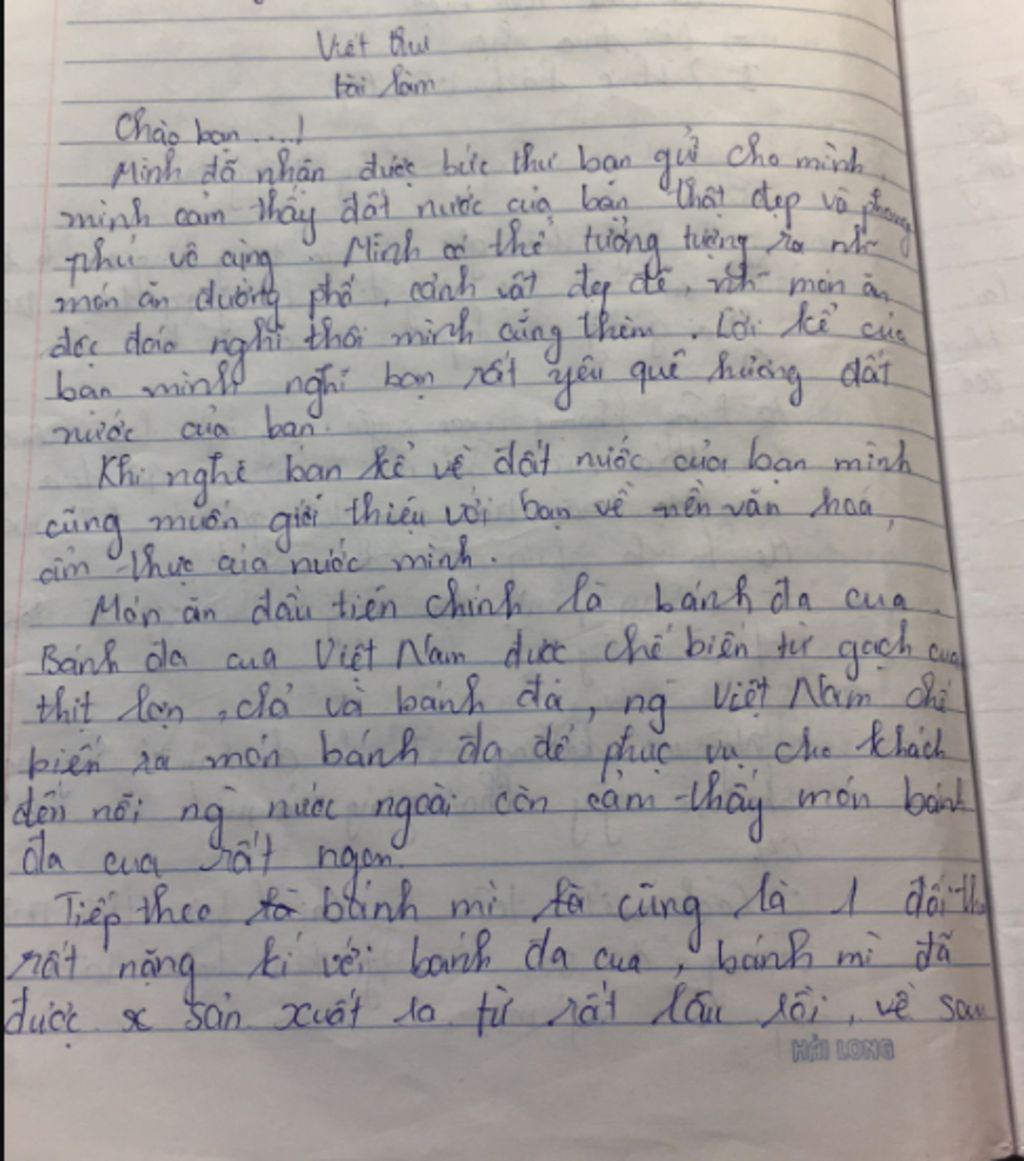 Viết thư
bài làm
Chào bạn....!
Mình đã nhận được bức thư bạn gử cho mình,
mình cảm thấy đất nước của bạn thật đẹp và phong
phú vô cùng. Mình có thể tưởng tượng ra nh~
món ăn đường phố, cảnh vật đẹp đẽ, nh~ món ăn
độc đáo nghĩ thôi mình cũng thèm. Lời kể của
bạn mình nghĩ bạn rất yêu quê hương đất
nước của bạn.
Khi nghe bạn kể về đất nước của bạn mình
cũng muốn giới thiệu với bạn về nền văn hoá,
ẩm thực của nước mình.
Món ăn đầu tiên chính là bánh đa cua.
Bánh đa cua Việt Nam được chế biến từ gạch cua
thịt lợn, chả và bánh đa, ng Việt Nam chế
biến ra món bánh đa để phục vụ cho khách
đến nỗi ng nước ngoài còn cảm thấy món bánh
đa cua rất ngon.
Tiếp theo bánh mì cũng là 1 đối th
rất nặng kí với bánh đa cua, bánh mì đã
được x sản xuất ra từ rất lâu rồi, về sau
HẢI LONG